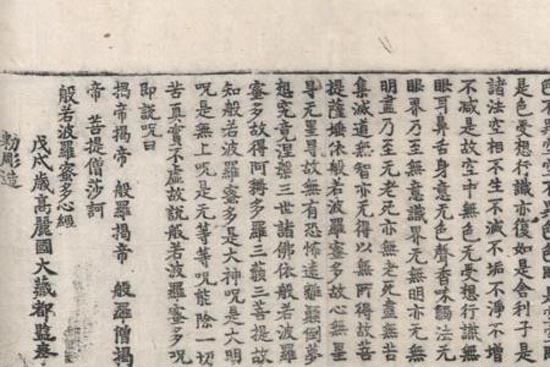 是色受想行識亦復如是舍利子是
諸法空相不生不滅不垢不淨不增
不減是故空中無色无受想行識無
眼耳鼻舌身意无色聲香味觸法无
眼界乃至無意識界无無明亦无無
明盡乃至无老死亦無老死盡無苦
集滅道無智亦无得以無所得故菩
提薩埵依般若波羅蜜多故心無罣
㝵无罣㝵故無有恐怖遠離顛倒夢
想究竟涅槃三世諸佛依般若波羅
蜜多故得阿耨多羅三藐三菩提故
知般若波羅蜜多是大神呪是大明
呪是無上呪是无等等呪能除一切
苦真實不虛故說般若波羅蜜多呪
即說呪曰
揭帝揭帝 般羅揭帝 般羅僧揭
帝 菩提僧莎訶
般若波羅蜜多心經
戊戌歲高麗國大藏都監奉
勑彫造